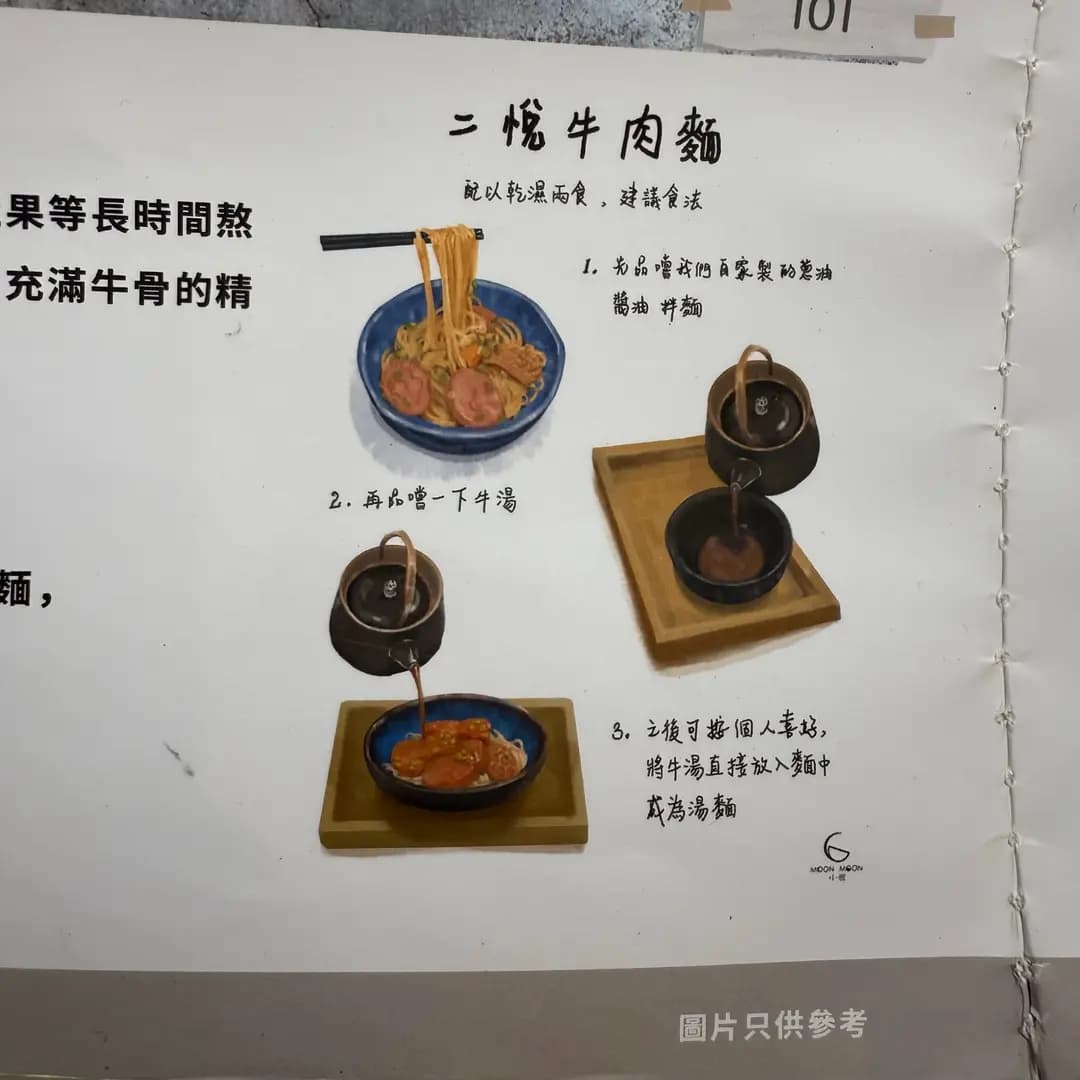 101
二悅牛肉麵
配以乾濕兩食，建議食法
果等長時間熬
充滿牛骨的精
1. 先品嚐我們自家製的蔥油
醬油 拌麵
2. 再品嚐一下牛湯
麵，
3. 之後可按個人喜好，
將牛湯直接放入麵中
成為湯麵
MOON MOON
圖片只供參考